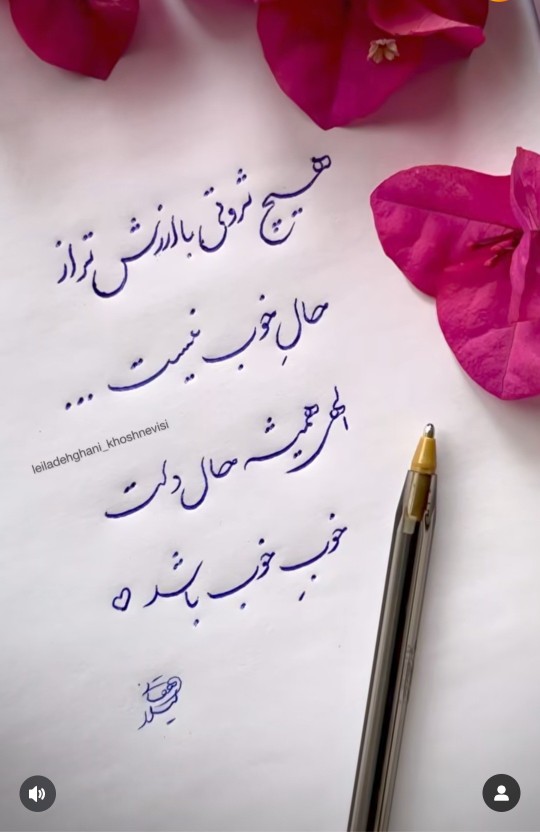 هیچ ثروتی باارزش تر از
حالِ خوب نیست ...
الهی همیشه حال دلت
خوبِ خوب باشد ♡
leiladehghani_khoshnevisi